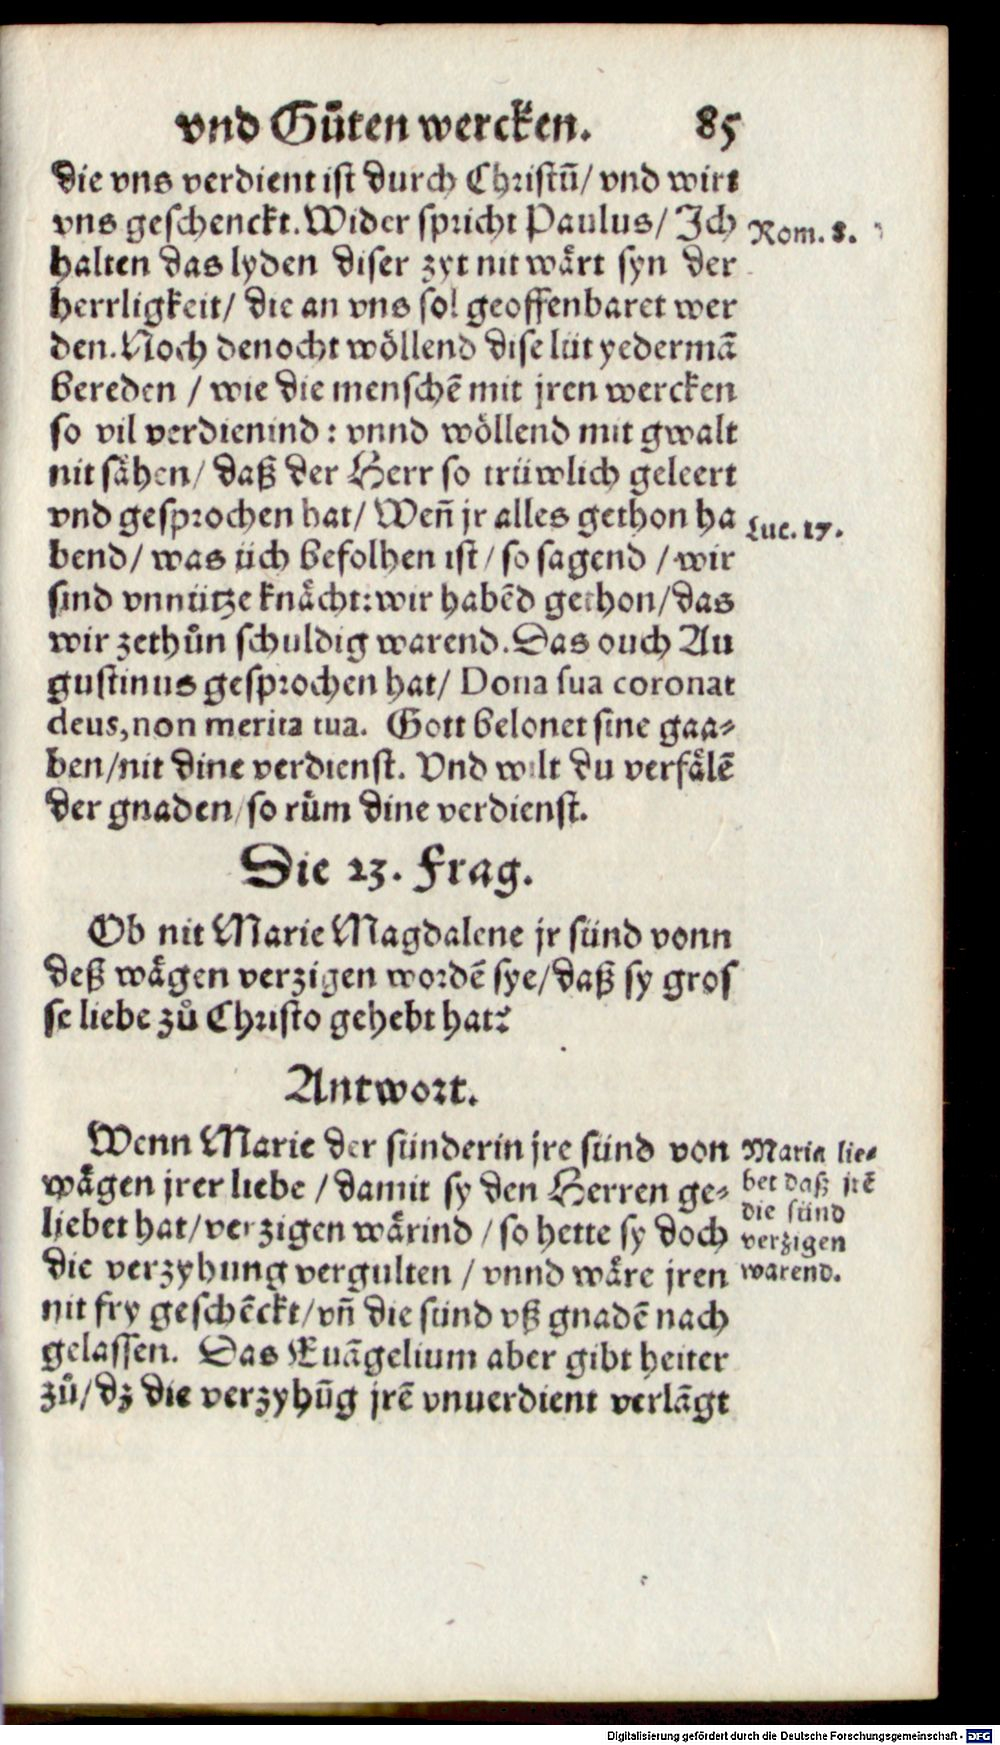 vnd Gůten wercken. 85
die vns verdient ist durch Christū/ vnd wirt
vns geschenckt. Wider spricht Paulus/ Ich
Rom. 8.
halten das lyden diser zyt nit wårt syn der
herrligkeit/ die an vns sol geoffenbaret wer
den. Noch denocht wöllend dise lüt yedermā
bereden / wie die menschē mit jren wercken
so vil verdienind : vnnd wöllend mit gwalt
nit såhen/ daß der Herr so trüwlich geleert
vnd gesprochen hat/ Weñ jr alles gethon ha
Luc. 17.
bend/ was üch befolhen ist / so sagend / wir
sind vnnütze knåcht: wir habēd gethon/ das
wir zethůn schuldig warend. Das ouch Au
gustinus gesprochen hat/ Dona sua coronat
deus, non merita tua. Gott belonet sine gaa-
ben/nit dine verdienst. Vnd wilt du verfålē
der gnaden/ so rům dine verdienst.
Die 23. Frag.
Ob nit Marie Magdalene jr sünd vonn
deß wågen verzigen wordē sye/ daß sy gros
se liebe zů Christo gehebt hat?
Antwort.
Wenn Marie der sünderin jre sünd von
wågen jrer liebe / damit sy den Herren ge-
liebet hat/ verzigen wårind / so hette sy doch
die verzyhung vergulten / vnnd wåre jren
nit fry geschēckt/ vñ die sünd vß gnadē nach
gelassen. Das Euāgelium aber gibt heiter
zů/ dz die verzyhūg jrē vnuerdient verlāgt
Maria lie-
bet daß jrē
die sünd
verzigen
warend.
Digitalisierung gefördert durch die Deutsche Forschungsgemeinschaft - DFG